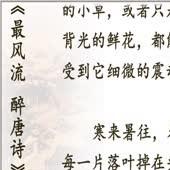 《最风流 醉唐诗》
的小草，或者只
背光的鲜花，都
受到它细微的震
寒来暑往，
每一片落叶掉在